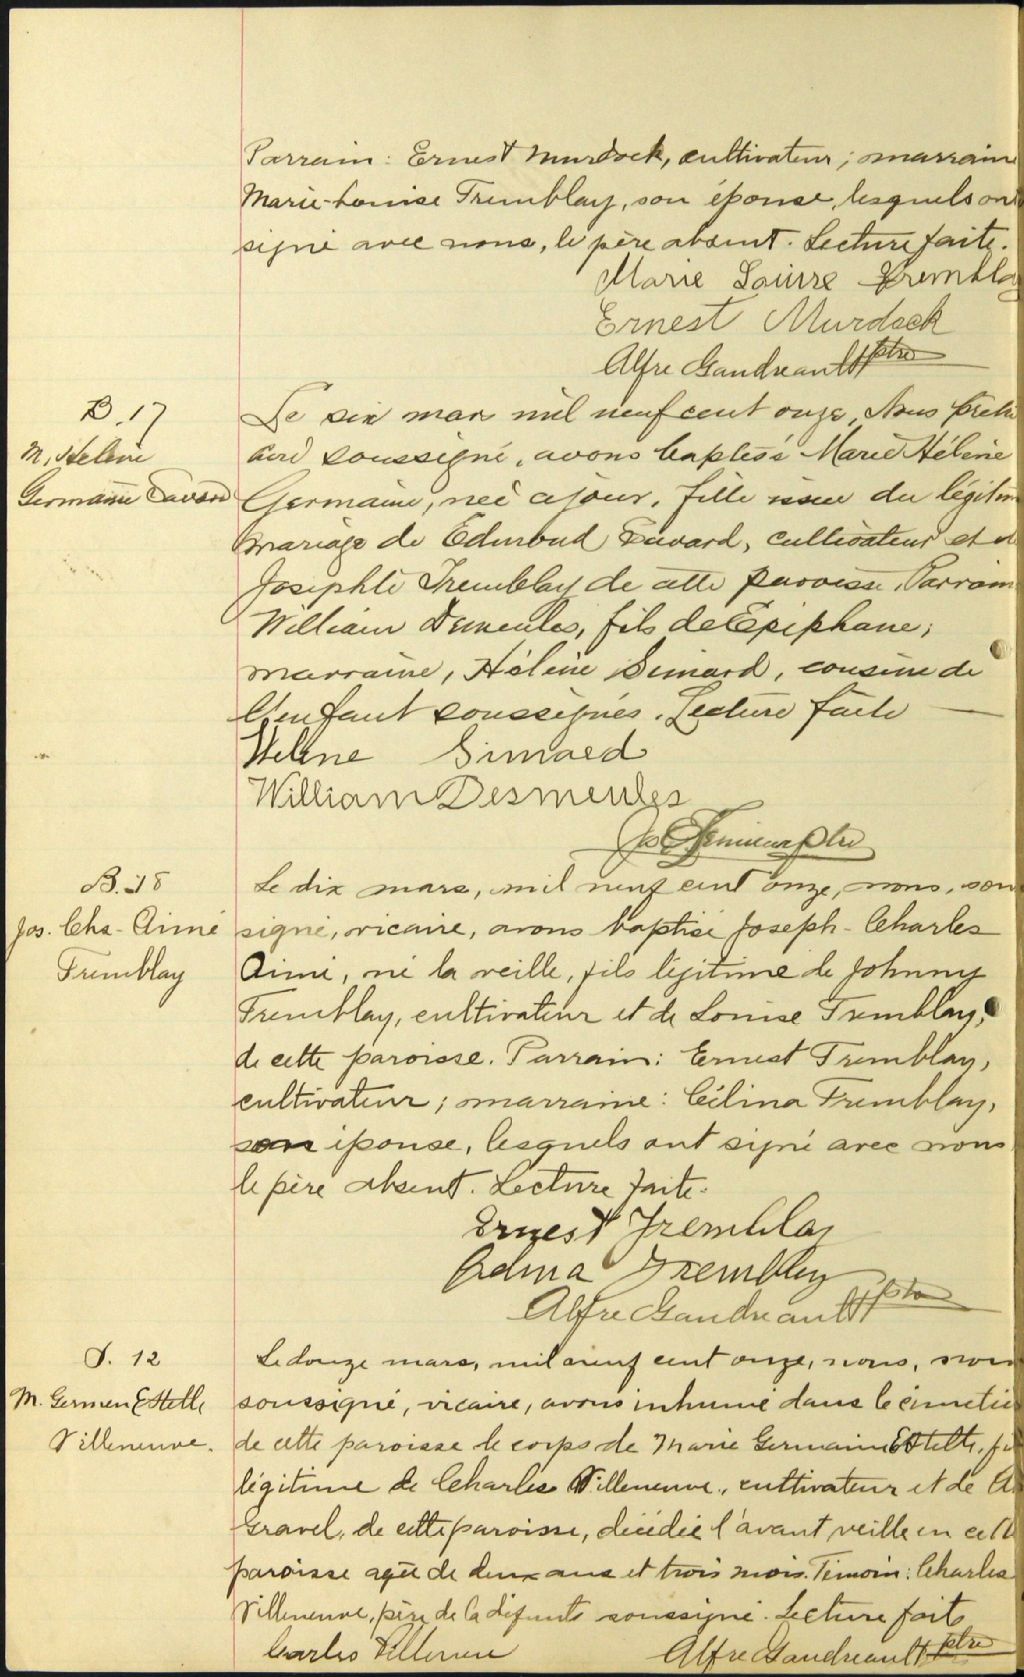 Parrain: Ernest Murdock, cultivateur; marraine
Marie-Louise Tremblay, son épouse, lesquels ont
signé avec nous, le père absent. Lecture faite.
Marie Louise Tremblay
Ernest Murdock
Alfre Gaudreault ptre
B. 17
M. Helène
Germaine Savard
Le six mars mil neuf cent onze, Nous prêtre
curé soussigné, avons baptisé Marie Hélène
Germaine, née ce jour, fille issue du légitime
mariage de Edmond Savard, cultivateur et de
Josephte Tremblay de cette paroisse. Parrain
William Desmeules, fils de Epiphane;
marraine, Hélène Simard, cousine de
l'enfant soussignés. Lecture faite
Helène Simard
William Desmeules
ptre
B. 18
Jos. Chs-Aimé
Tremblay
Le dix mars, mil neuf cent onze, nous, sous
signé, vicaire, avons baptisé Joseph-Charles
Aimé, né la veille, fils légitime de Johnny
Tremblay, cultivateur et de Louise Tremblay,
de cette paroisse. Parrain: Ernest Tremblay,
cultivateur; marraine: Célina Tremblay,
son épouse, lesquels ont signé avec nous
le père absent. Lecture faite.
Ernest Tremblay
Tremblay
Alfre Gaudreault ptre
S. 12
M. Germen Estelle
Villeneuve.
Le douze mars, mil neuf cent onze, nous,
soussigné, vicaire, avons inhumé dans le cimetière
de cette paroisse le corps de Marie Germaine Estelle,
légitime de Charles Villeneuve, cultivateur et de
Gravel, de cette paroisse, décédée l'avant veille en cette
paroisse agée de deux ans et trois mois. Témoin: Charles
Villeneuve, père de la défunte soussigné. Lecture faite
Carles Villeneuve
Alfre Gaudreault ptre